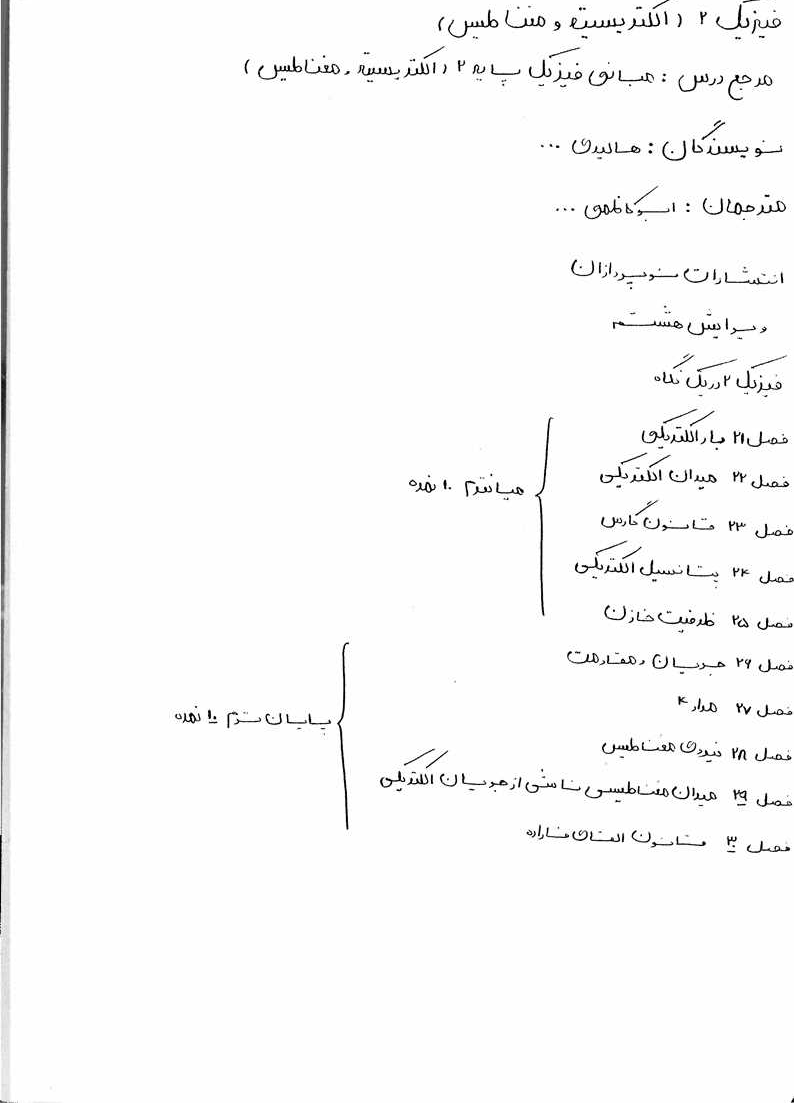 فیزیک ۲ (الکتریسیته و مغناطیس)
مرجع درس : مبانی فیزیک پایه ۲ (الکتریسیته و مغناطیس)
نویسندگان : هالیدی ...
مترجمان : ابوکاظمی ...
انتشارات نوپردازان
ویرایش هشتم
فیزیک ۲ در یک نگاه
فصل ۲۱ بار الکتریکی
فصل ۲۲ میدان الکتریکی
فصل ۲۳ قانون گاوس
فصل ۲۴ پتانسیل الکتریکی
فصل ۲۵ ظرفیت خازن
میانترم ۱۰ نمره
فصل ۲۶ جریان و مقاومت
فصل ۲۷ مدارها
فصل ۲۸ نیروی مغناطیسی
فصل ۲۹ میدان مغناطیسی ناشی از جریان الکتریکی
فصل ۳۰ قانون القای فاراده
پایان ترم ۱۰ نمره